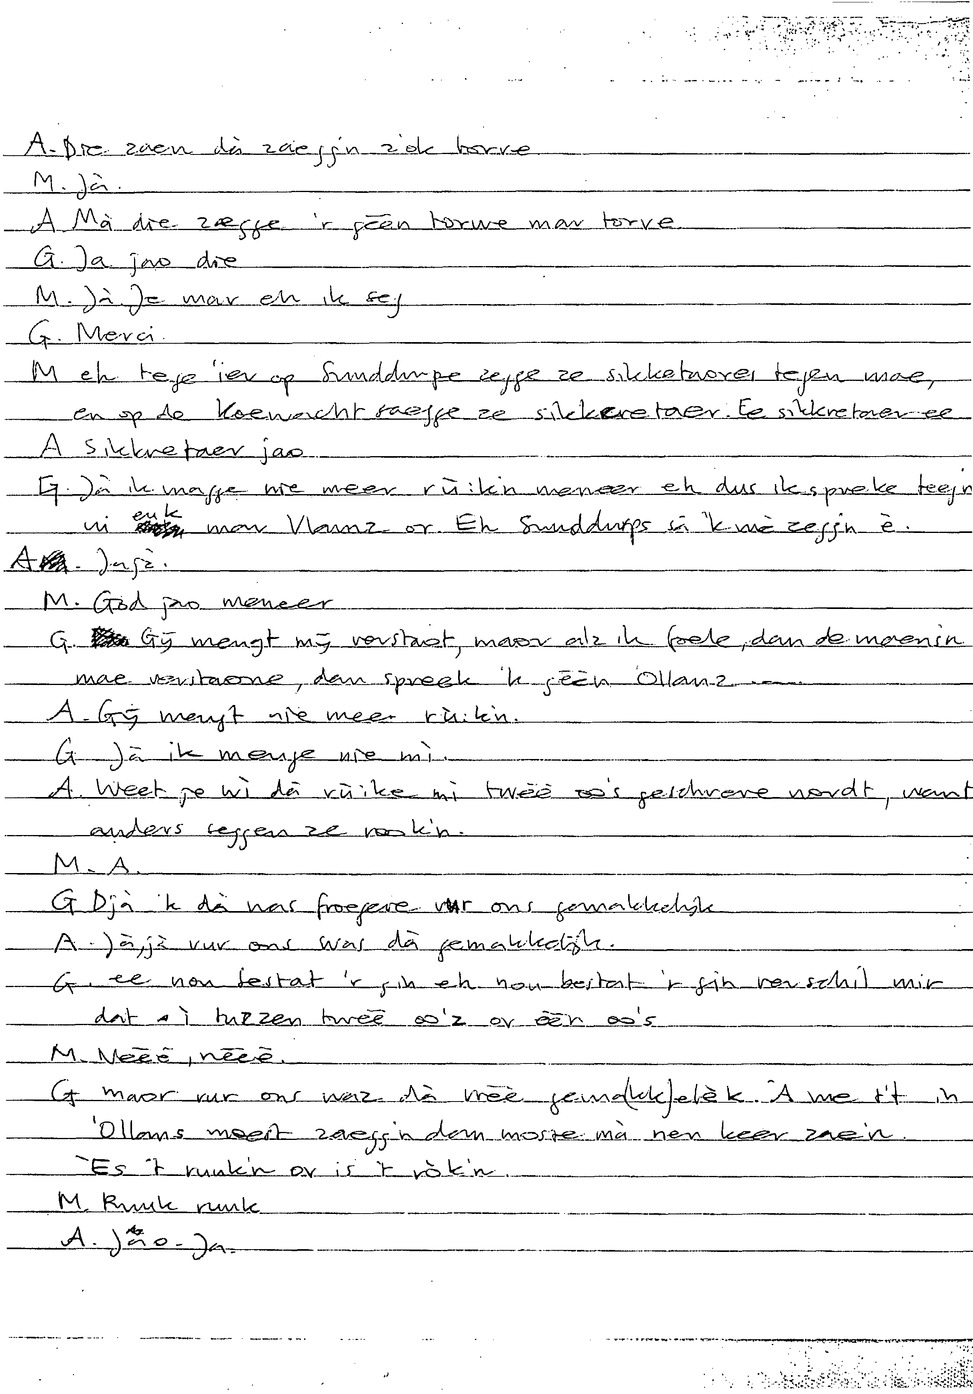 A. Die zaen dà zaeggn z'ok torve
M. Jà.
A Mà die zægge 'r gēēn torwe mar torve
G. Ja jao die
M. Jà Je mar eh ik seg
G. Merci.
M eh tege 'ier op Sunddurpe zegge ze sikketaores tegen mae,
en op de Koewacht saegge ze sikkeretaer. Ee sikkretaer ee
A Sikkretaer jao
G. Jà ik magge nie meer rūikn meneer eh dus ik spreke teejn
ui euk mar Vlamz or. Eh Sunddurps sà 'k mè zeggn è.
A. Jajà.
M. God jao meneer
G. Gij mengt mij verstaot, maor alz ik foele, dan de maenin
mae verstaone, dan spreek 'k gēēn 'Ollanz
A. Gij mengt nie meer rùikn.
G Jā ik menge nie mì.
A. Weet je wì dà rùike mì twēē oo's geschreve wordt, want
anders seggen ze rookn.
M. A.
G Djà 'k dà was froegere vur ons gemakkelijk
A. Jà, jà vur ons was dà gemakkelijk.
G. ee nou bestat 'r gin eh nou bestat 'r gin verschil mir
dat ì tuzzen twēē oo'z or ēēn oo's
M. Nēēē, nēēē.
G maor vur ons waz dà vrēē gema(kk)elèk. A me t't in
'Ollans moest zaeggn dam moste mà nen keer zae'n.
Es 't ruuk'n or is 't ròk'n.
M. Ruuk ruuk
A. Jāo-Ja.